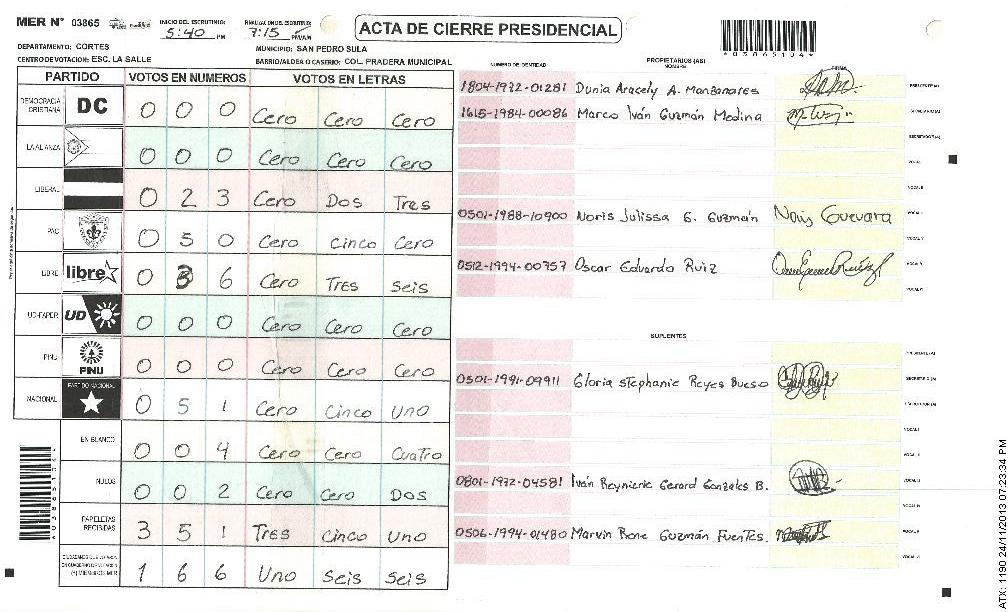 MER N° 03865
INICIO DEL ESCRUTINIO: 5:40 PM
FINALIZACION DEL ESCRUTINIO: 7:15 PM/AM
ACTA DE CIERRE PRESIDENCIAL
DEPARTAMENTO: CORTES
MUNICIPIO: SAN PEDRO SULA
CENTRO DE VOTACION: ESC. LA SALLE
BARRIO/ALDEA O CASERIO: COL. PRADERA MUNICIPAL
PARTIDO VOTOS EN NUMEROS VOTOS EN LETRAS
DEMOCRACIA CRISTIANA DC 0 0 0 Cero Cero Cero
LA ALIANZA 0 0 0 Cero Cero Cero
LIBERAL 0 2 3 Cero Dos Tres
PAC 0 5 0 Cero Cinco Cero
LIBRE libre 0 3 6 Cero Tres Seis
UD-FAPER UD 0 0 0 Cero Cero Cero
PINU PINU 0 0 0 Cero Cero Cero
NACIONAL PARTIDO NACIONAL 0 5 1 Cero Cinco Uno
EN BLANCO 0 0 4 Cero Cero Cuatro
NULOS 0 0 2 Cero Cero Dos
PAPELETAS RECIBIDAS 3 5 1 Tres Cinco Uno
CIUDADANOS QUE VOTARON EN CUADERNO DE VOTACION (+) MIEMBROS MER 1 6 6 Uno Seis Seis
NUMERO DE IDENTIDAD PROPIETARIOS (AS) NOMBRE FIRMA
1804-1972-01281 Dunia Aracely A. Manzanares PRESIDENTE (A)
1615-1984-00086 Marco Iván Guzmán Medina SECRETARIO (A)
ESCRUTADOR (A)
VOCAL I
VOCAL II
0501-1988-10900 Noris Julissa G. Guzmán Noris Guevara
0512-1994-00757 Oscar Eduardo Ruiz
SUPLENTES
PRESIDENTE (A)
0501-1991-09911 Gloria Stephanie Reyes Bueso SECRETARIO (A)
ESCRUTADOR (A)
VOCAL I
VOCAL II
0801-1972-04581 Iván Reynierie Gerard Gonzales B.
0506-1994-01480 Marvin Rene Guzmán Fuentes.
*03865104*
ATX: 1190 24/11/2013 07:23:34 PM